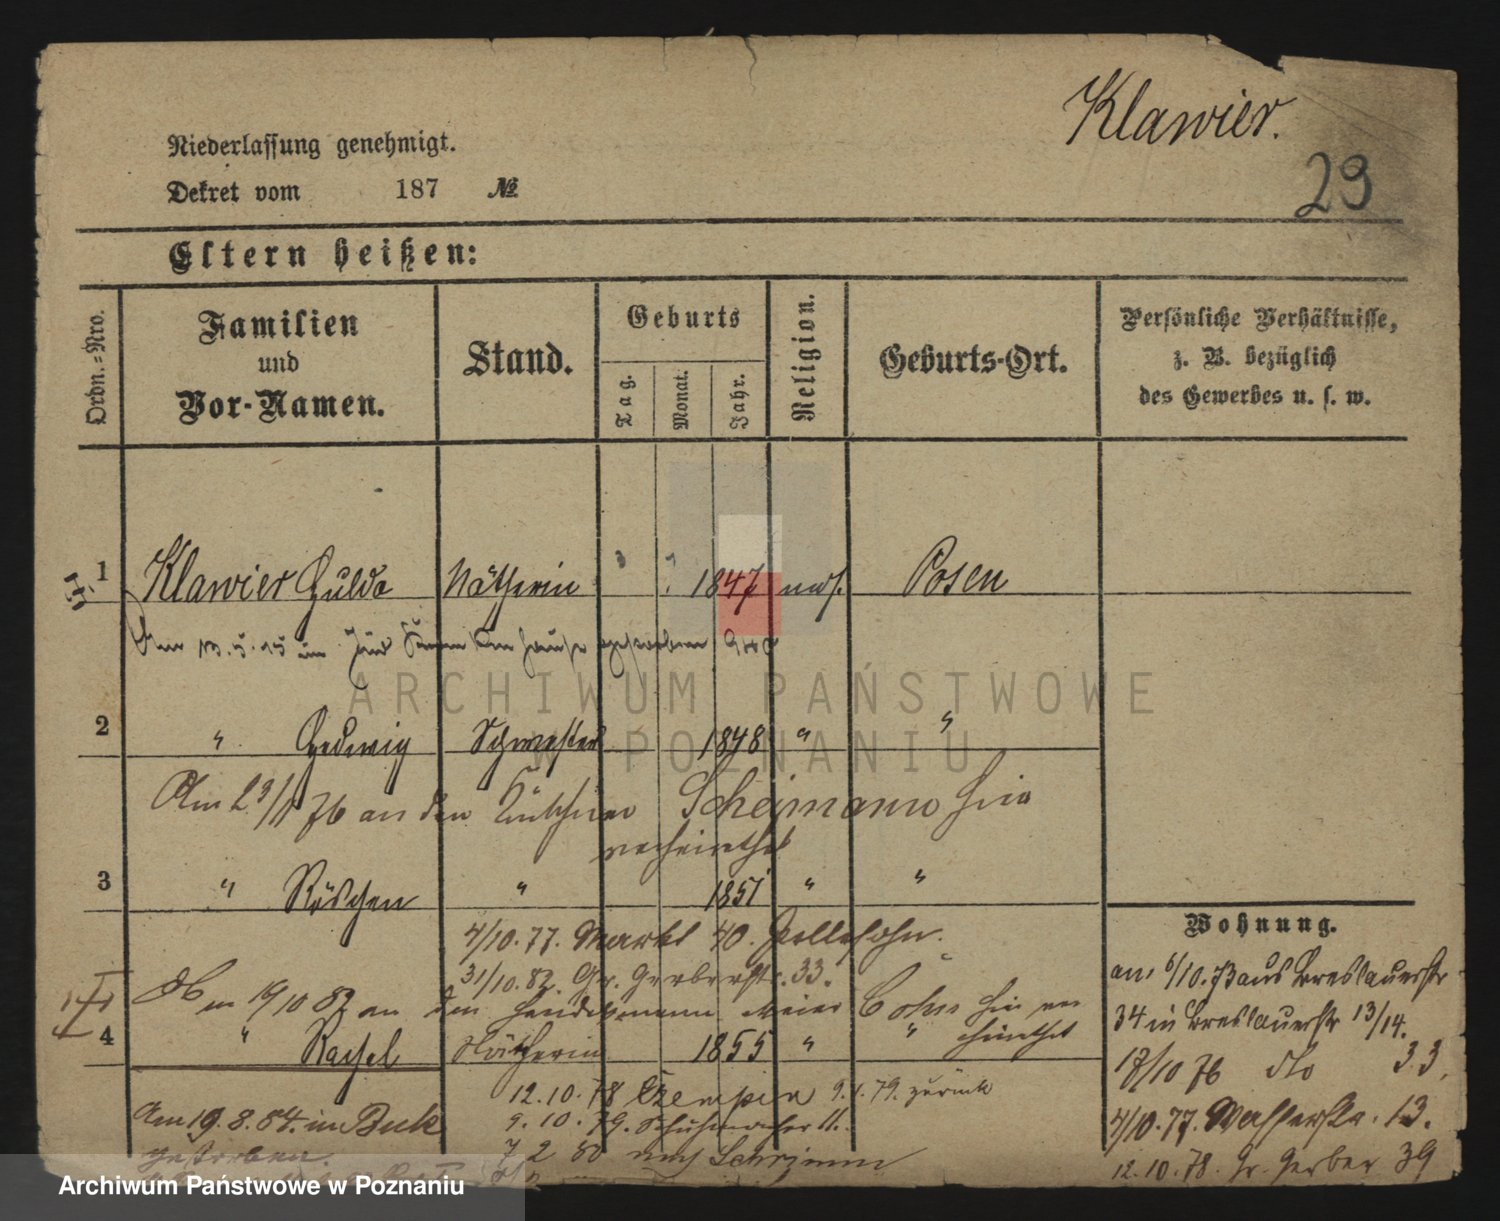 Klawier.
29
Niederlassung genehmigt.
Dekret vom 187 №
Eltern heißen:
Ordn.-Nro.
Familien und Vor-Namen.
Stand.
Geburts
Tag.
Monat.
Jahr.
Religion.
Geburts-Ort.
Persönliche Verhältnisse,
z. B. bezüglich
des Gewerbes u. s. w.
1 Klawier Hulda Nätherin 1847 mos. Posen
ARCHIWUM PAŃSTWOWE
W POZNANIU
2 " Hedwig Schwester 1848 " "
Am 29/1 76 an den Scheimann hier
verheirathet
3 " Röschen " 1851 " "
4/10.77. Markt 40.
31/10.82. Gr. Gerberstr. 33.
19/10 82 an den Handelsmann Meier Cohn hier ver
heirathet
4 " Rachel Nätherin 1855 " "
12.10.78 Czempin 9.1.79. zurück
9.10.79. Schuhmacher 11.
Am 19.8.84. in Buk
gestorben.
7 2 80 nach Schrimm
Wohnung.
am 6/10.73 aus Breslauerstr
34 in Breslauerstr 13/14.
17/10 76 dto 33.
4/10.77. Wasserstr. 13.
12.10.78. Gr. Gerber 39
Archiwum Państwowe w Poznaniu